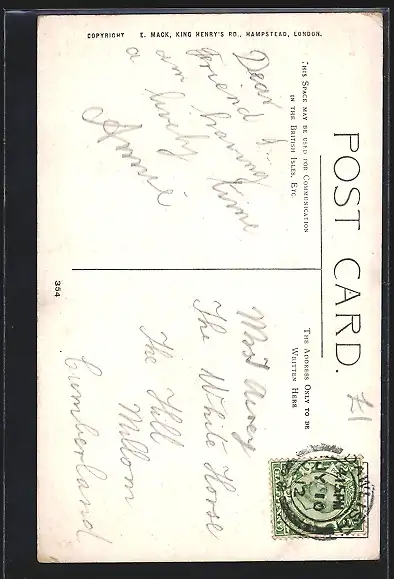 COPYRIGHT E. MACK, KING HENRY'S RD., HAMPSTEAD, LONDON.
POST CARD.
THIS SPACE MAY BE USED FOR COMMUNICATION
IN THE BRITISH ISLES, ETC.
THE ADDRESS ONLY TO BE
WRITTEN HERE
Dear
Friend I
am having
a lively time
Annie
Miss
The White Horse
The Hill
Millom
Cumberland
£1
JY 10
12
354